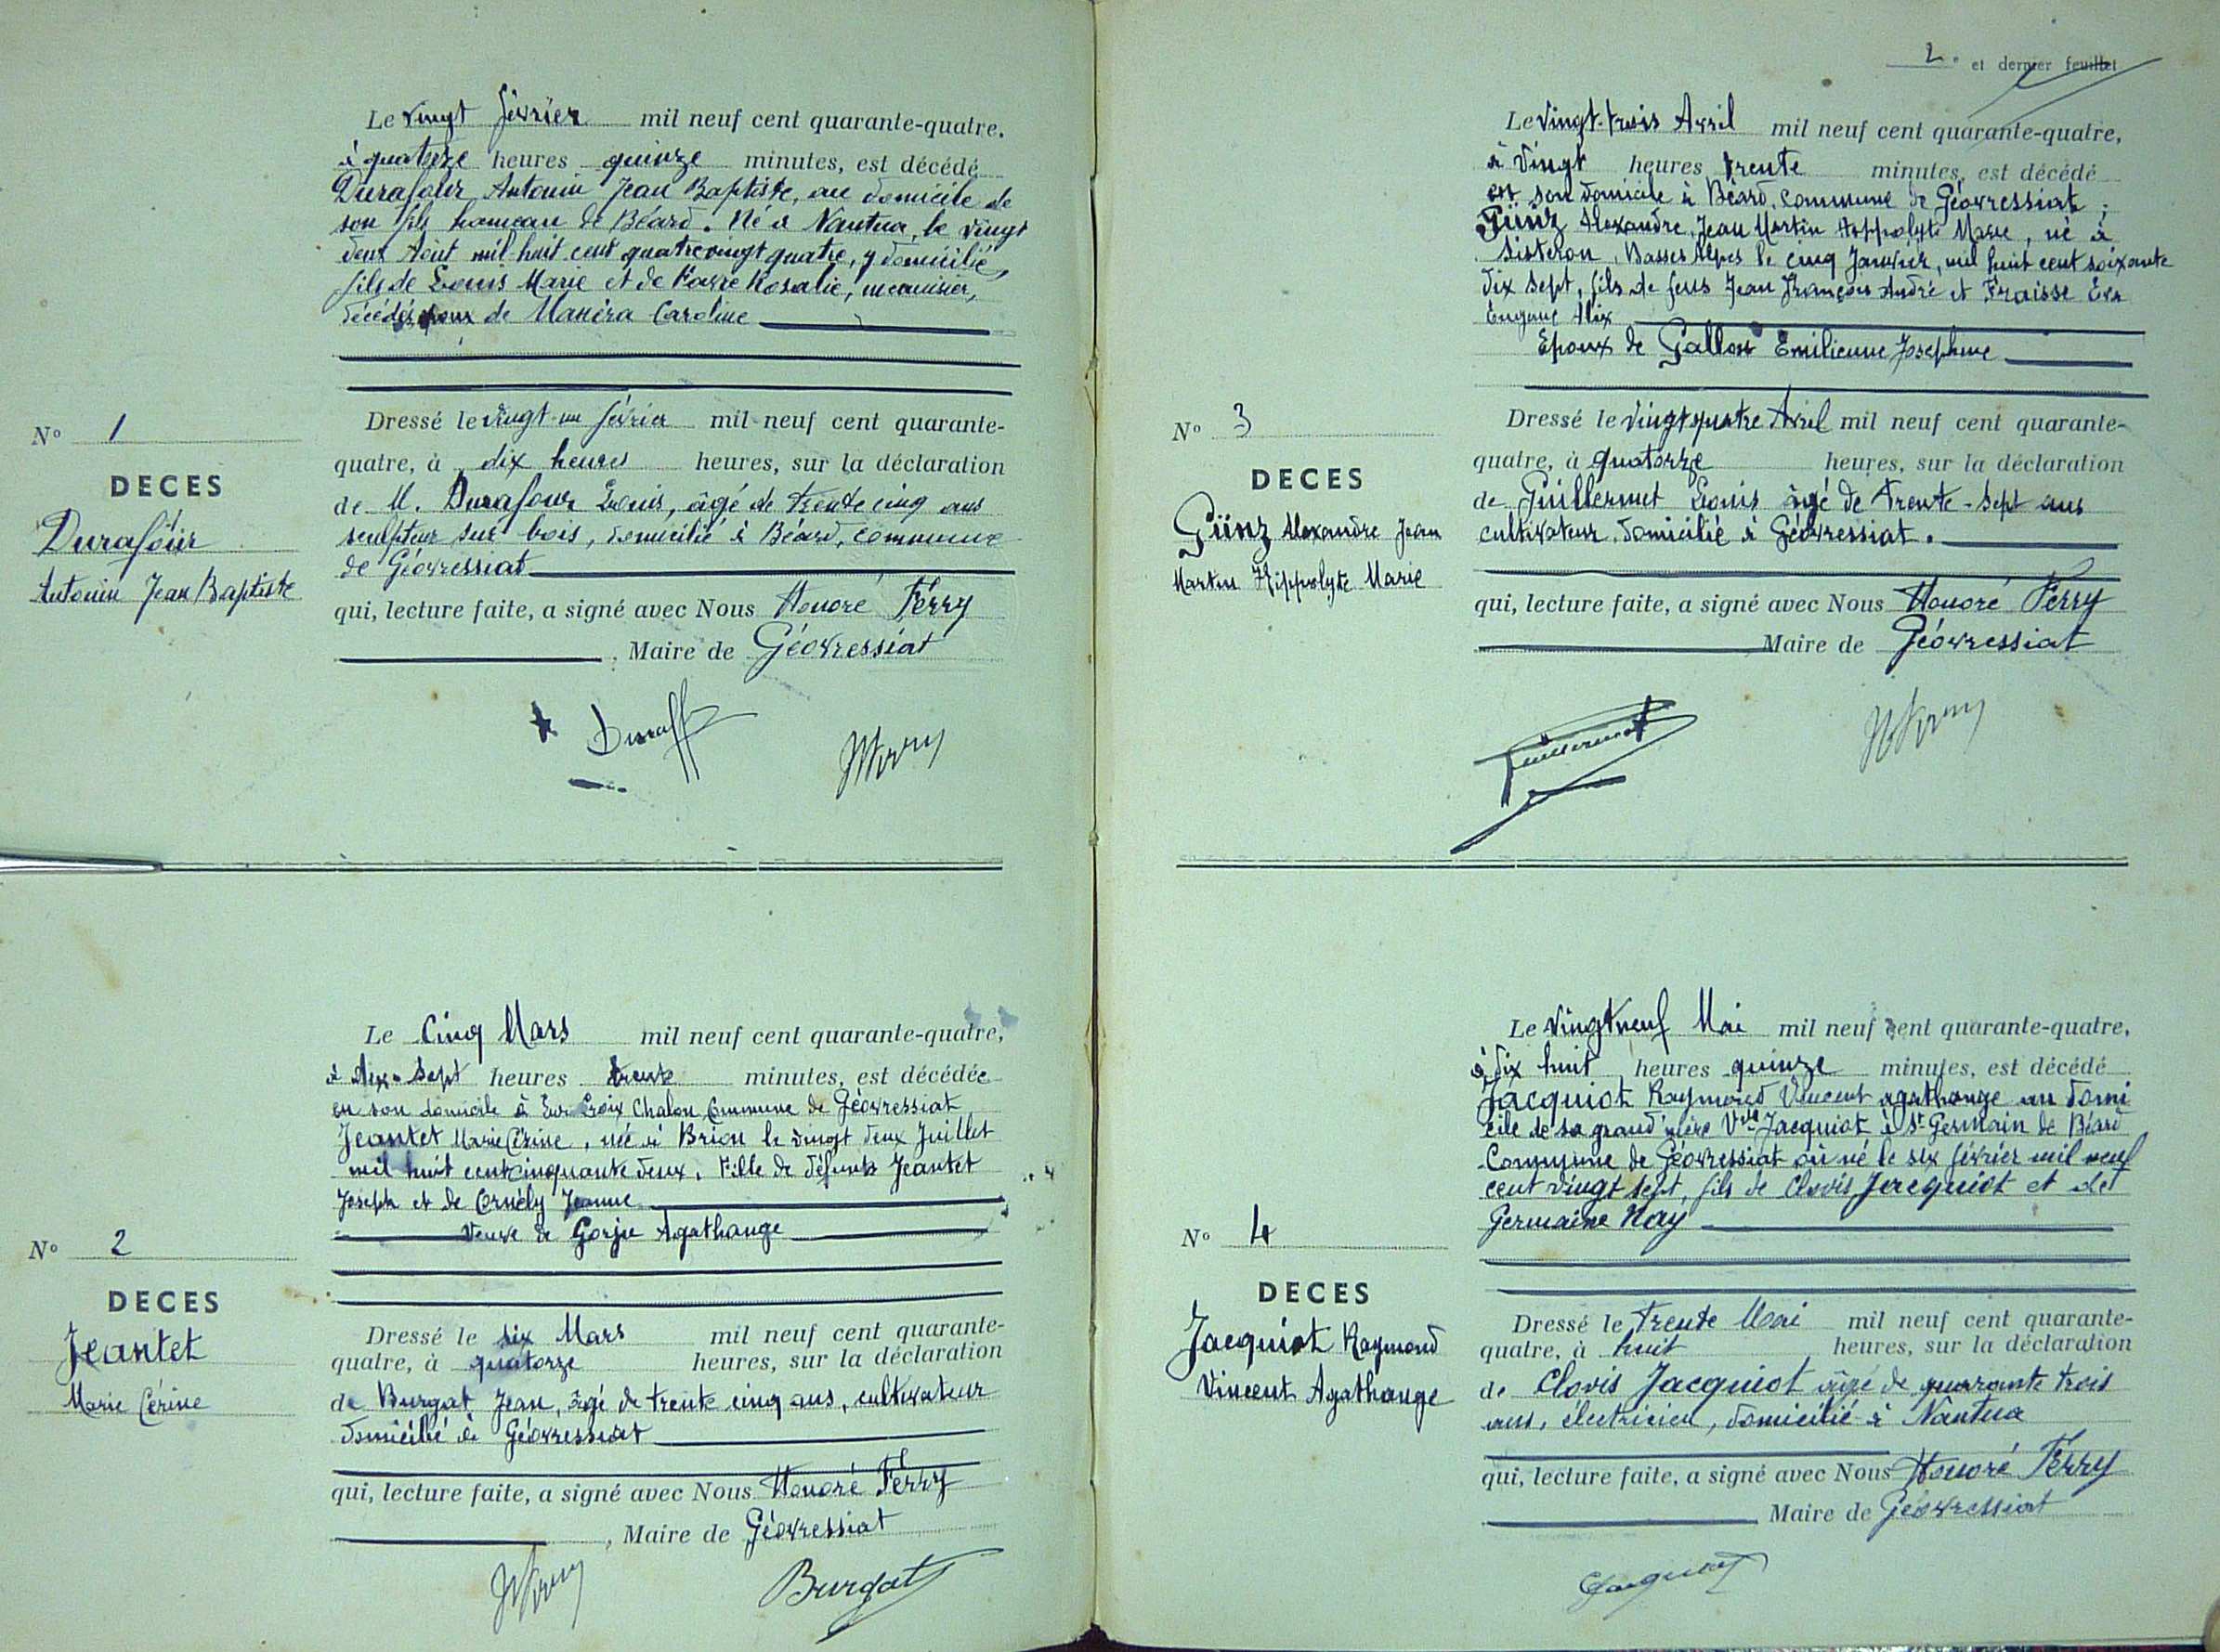 Le vingt février mil neuf cent quarante-quatre,
à quatorze heures quinze minutes, est décédé
Durafour Antonin Jean Baptiste, au domicile de
son fils hameau de Béard. Né à Nantua, le vingt
deux Août mil huit cent quatre vingt quatre, y domicilié,
fils de Louis Marie et de Favre Rosalie, menuisier,
décédés époux de Maniéra Caroline
N° 1
DECES
Durafour
Antonin Jean Baptiste
Dressé le vingt-un février mil neuf cent quarante-
quatre, à dix heures heures, sur la déclaration
de M. Durafour Louis, âgé de trente cinq ans
sculpteur sur bois, domicilié à Béard, commune
de Géovressiat
qui, lecture faite, a signé avec Nous Honoré Férry
, Maire de Géovressiat
Le Cinq Mars mil neuf cent quarante-quatre,
à dix-sept heures trente minutes, est décédée
en son domicile à Chalon Commune de Géovressiat
Jeantet Marie Cérine, née à Brion le vingt deux Juillet
mil huit cent cinquante deux, Fille de défunts Jeantet
Joseph et de Cornély Jeanne
Veuve de Gorju Agathange
N° 2
DECES
Jeantet
Marie Cérine
Dressé le six Mars mil neuf cent quarante-
quatre, à quatorze heures, sur la déclaration
de Burgat Jean, âgé de trente cinq ans, cultivateur
domicilié à Géovressiat
qui, lecture faite, a signé avec Nous Honoré Férry
, Maire de Géovressiat
Burgat
2. et dernier feuillet
Le Vingt-trois Avril mil neuf cent quarante-quatre,
à Vingt heures trente minutes, est décédé
en son domicile à Béard, Commune de Géovressiat,
Günz Alexandre, Jean Martin Hippolyte Marie, né à
Sisteron, Basses Alpes le cinq Janvier, mil huit cent soixante
dix sept, fils de feus Jean François André et Fraisse
Eugène Alix
Epoux de Gallou Emilienne Josephine
N° 3
DECES
Günz Alexandre Jean
Martin Hippolyte Marie
Dressé le Vingt quatre Avril mil neuf cent quarante-
quatre, à quatorze heures, sur la déclaration
de Guillermet Louis âgé de trente-sept ans
cultivateur, domicilié à Géovressiat.
qui, lecture faite, a signé avec Nous Honoré Férry
Maire de Géovressiat
Guillermet
Le Vingt neuf Mai mil neuf cent quarante-quatre,
à dix huit heures quinze minutes, est décédé
Jacquiot Raymond Vincent agathange au domi
cile de sa grand'mère Vve Jacquiot à St Germain de Béard
Commune de Géovressiat où né le six février mil neuf
cent vingt sept, fils de Clovis Jacquiot et de
Germaine Nay
N° 4
DECES
Jacquiot Raymond
Vincent Agathange
Dressé le trente Mai mil neuf cent quarante-
quatre, à huit heures, sur la déclaration
de Clovis Jacquiot âgé de quarante trois
ans, électricien, domicilié à Nantua
qui, lecture faite, a signé avec Nous Honoré Férry
Maire de Géovressiat
Jacquiot